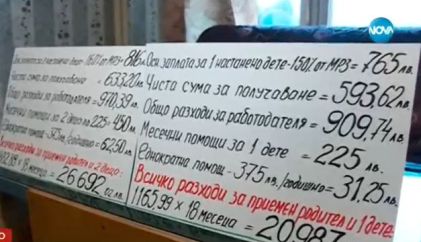 NOVA
Осн. заплата за 1 настанено дете - 150% от МРЗ = 765 лв.
Чиста сума за получаване = 593,62 лв.
Общо разходи за работодателя = 909,74 лв.
Месечни помощи за 1 дете = 225 лв.
Еднократна помощ - 375 лв./годишно = 31,25 лв.
Всичко разходи за приемен родител и 1 дете:
1165,99 X 18 месеца = 20987
2 настанени деца - 160% от МРЗ = 816 лв.
Чиста сума за = 633,20 лв.
разходи за работодателя = 970,39 лв.
Месечни помощи за 2 деца по 225 = 450 лв.
помощ = годишно = 62,50 лв.
Всичко разходи за приемен родител и 2 деца:
X 18 месеца = 26 692,02 лв.